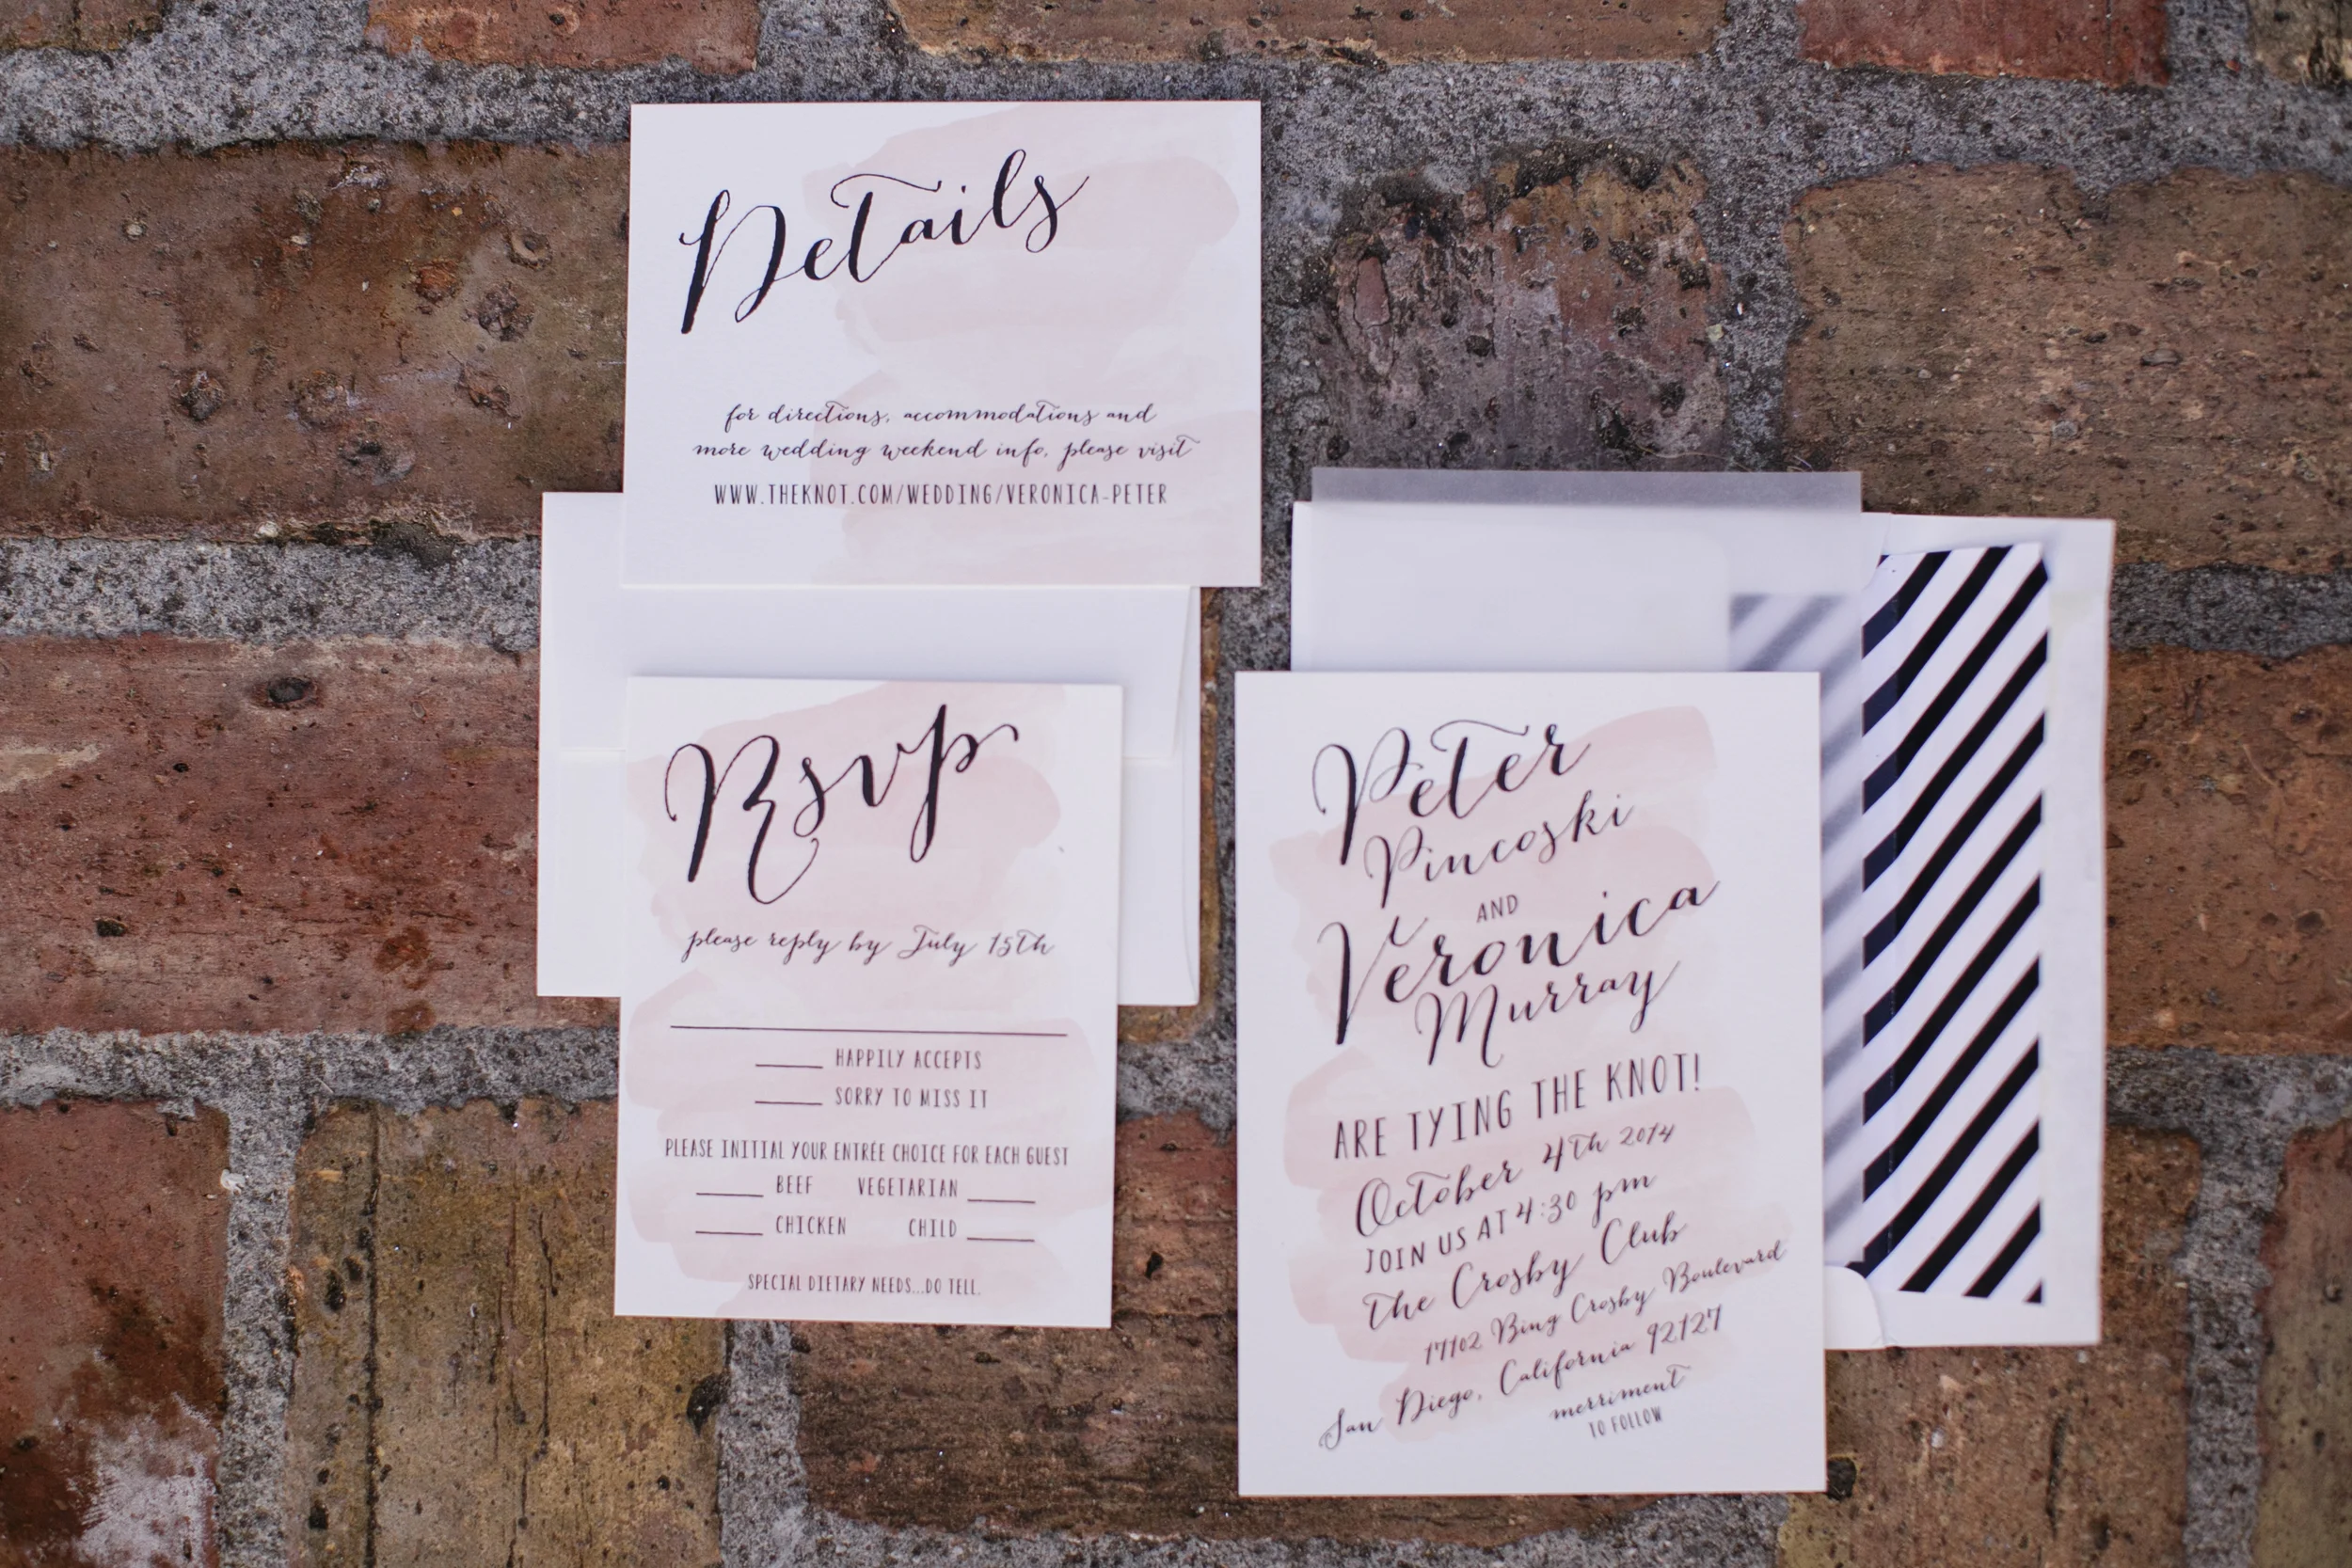 Details
for directions, accommodations and
more wedding weekend info, please visit
WWW.THEKNOT.COM/WEDDING/VERONICA-PETER
Rsvp
please reply by July 15th
HAPPILY ACCEPTS
SORRY TO MISS IT
PLEASE INITIAL YOUR ENTRÉE CHOICE FOR EACH GUEST
BEEF VEGETARIAN
CHICKEN CHILD
SPECIAL DIETARY NEEDS...DO TELL.
Peter
Pincoski
AND
Veronica
Murray
ARE TYING THE KNOT!
October 4th 2014
JOIN US AT 4:30 pm
The Crosby Club
17102 Bing Crosby Boulevard
San Diego, California 92127
merriment
TO FOLLOW